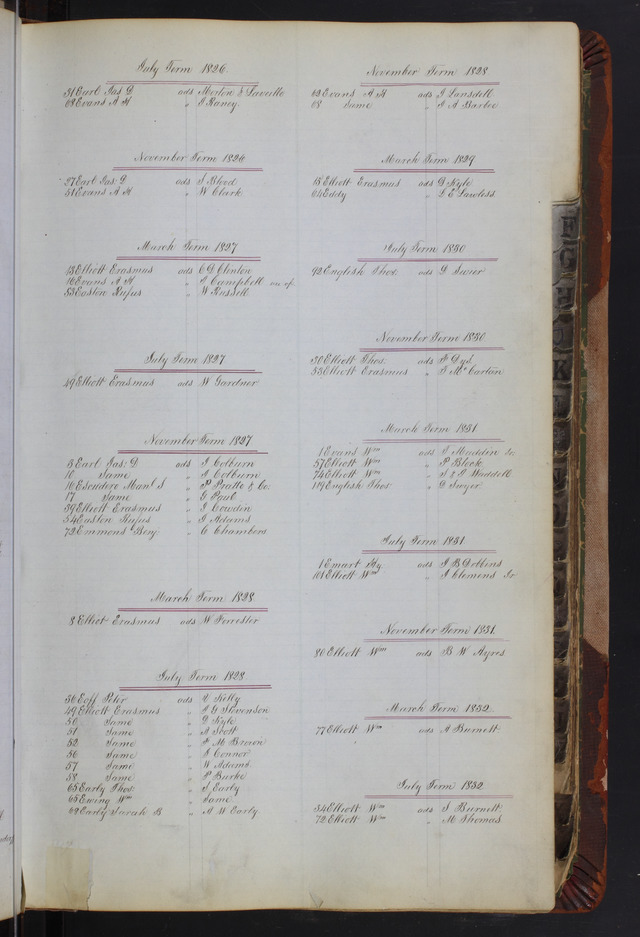 July Term 1826
31 Earl Jas. D ads Morton & Laveille
68 Evans A H " J Raney
November Term 1826
27 Earl Jas. D ads S Blood
51 Evans A H " W Clark
March Term 1827
13 Elliott Erasmus ads C D Clinton
16 Evans A H " Campbell
53 Easton Rufus " W Russell
July Term 1827
49 Elliott Erasmus ads W Gardner
November Term 1827
3 Earl Jas: D ads J Colburn
10 Same " J Colburn
16 Escudero Manl. S " P Pratte & Co.
17 Same " G Paul
39 Elliott Erasmus " J Cowdin
54 Easton Rufus " J Adams
72 Emmons Benj. " C Chambers
March Term 1828
8 Elliot Erasmus ads W Forrester
July Term 1828
36 Eoff Peter ads V Kelly
49 Elliott Erasmus " A G Stevenson
50 Same " D Kyle
51 Same " A Scott
52 Same " J M Brown
56 Same " J Connor
57 Same " W Adams
58 Same " P Burke
65 Early Thos. " J Early
65 Ewing Wm " Same
69 Early Sarah B " A W Early
November Term 1828
62 Evans A H ads J Lansdell
68 Same " J A Barbee
March Term 1829
13 Elliott Erasmus ads D Kyle
64 Eddy " L E Lawless
July Term 1830
92 English Thos ads D Swier
November Term 1830
30 Elliott Thos. ads
53 Elliott Erasmus " Mc Cartan
March Term 1831
1 Evans Wm ads J Maddin Sr.
57 Elliott Wm " P Block
74 Elliott Wm " J & J Waddell
119 English Thos " D Swyer
July Term 1831.
1 Emart Hy. ads J B Dobbins
101 Elliott Wm " J Clemens Jr
November Term 1831.
80 Elliott Wm ads B W Ayres
March Term 1832.
77 Elliott Wm ads A Burnett
July Term 1832
34 Elliott Wm ads S Burnett
72 Elliott Wm " M Thomas
F
G
H
K